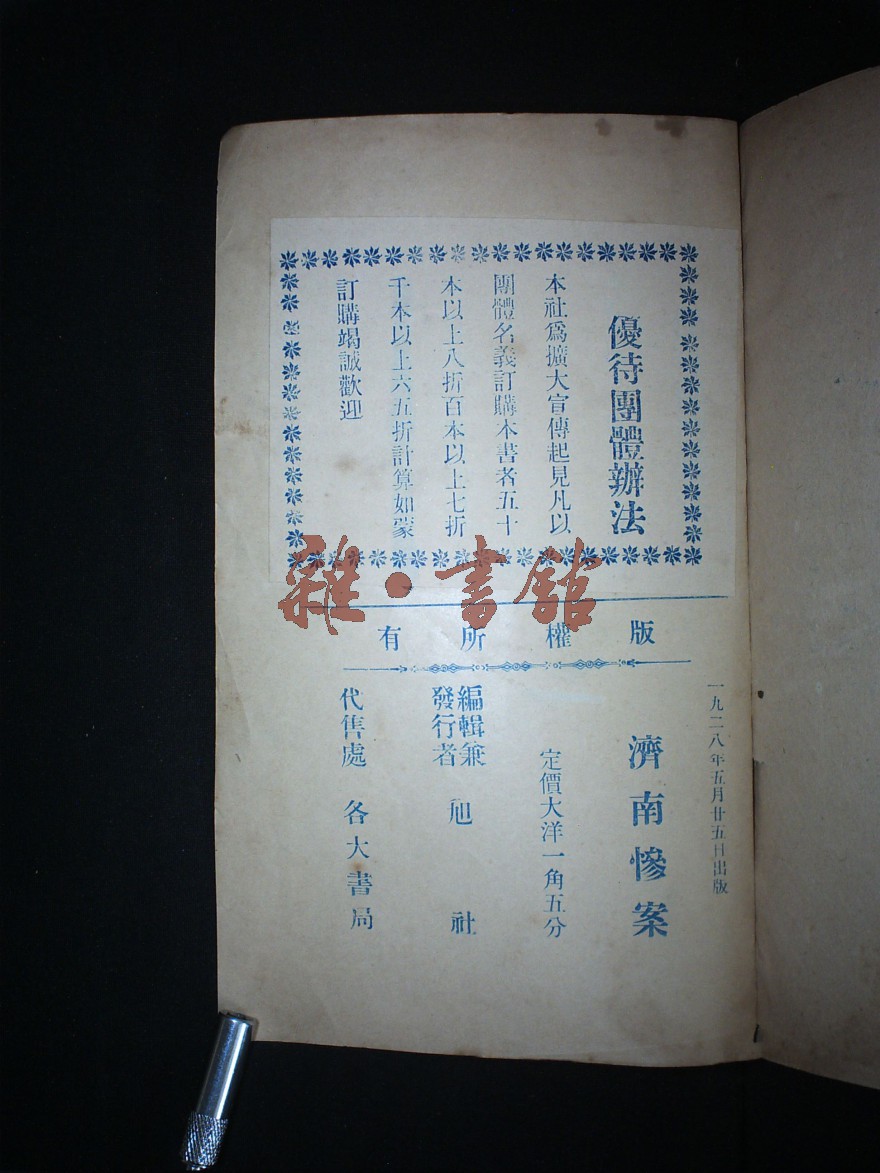 優待團體辦法
本社爲擴大宣傳起見凡以
團體名義訂購本書者五十
本以上八折百本以上七折
千本以上六五折計算如蒙
訂購竭誠歡迎
雜·書館
版權所有
一九二八年五月廿五日出版
濟南慘案
定價大洋一角五分
編輯兼
發行者
旭社
代售處 各大書局